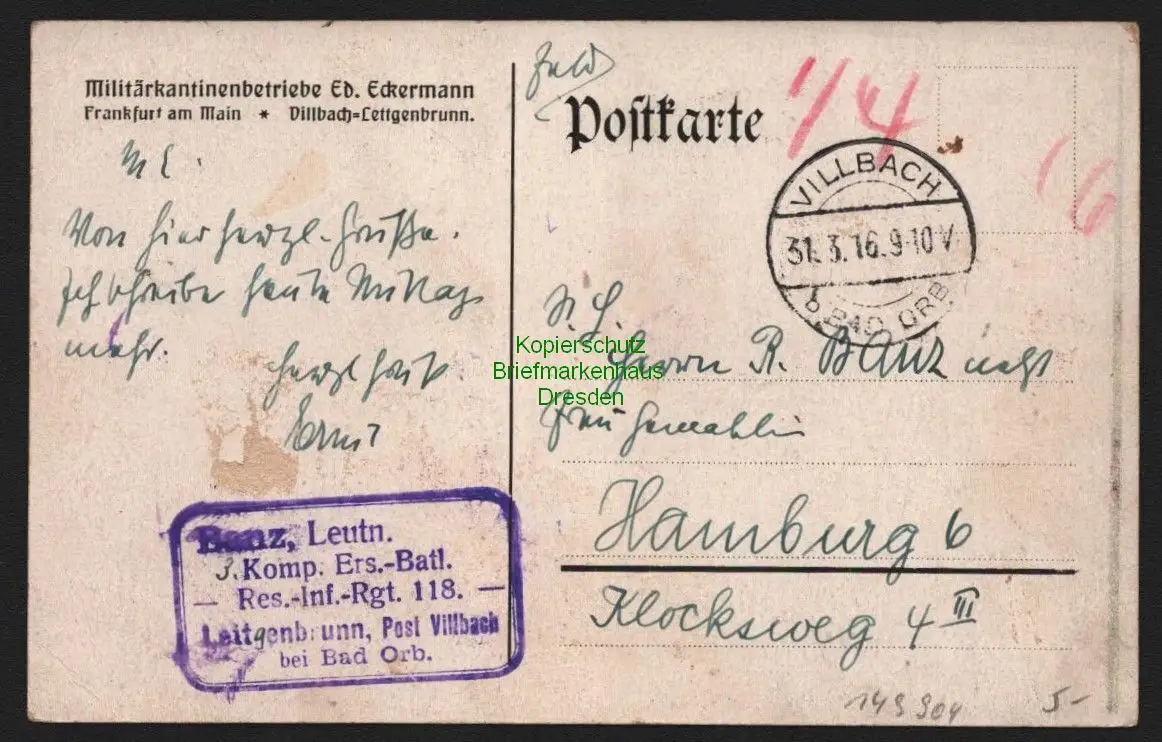 Militärkantinenbetriebe Ed. Eckermann
Frankfurt am Main * Villbach=Lettgenbrunn.
Von hier herzl. Grüße.
Ich schreibe heute Mittag
mehr.
Ernst
Banz, Leutn.
3. Komp. Ers.-Batl.
— Res.-Inf.-Rgt. 118. —
Lettgenbrunn, Post Villbach
bei Bad Orb.
Feld
Postkarte
1/4
VILLBACH
31.3.16.9-10V
b. BAD ORB.
S. H.
Herrn R. Banz nebst
Frau Gemahlin
Hamburg 6
Klocksweg 4 III
Kopierschutz
Briefmarkenhaus
Dresden
149904
5-